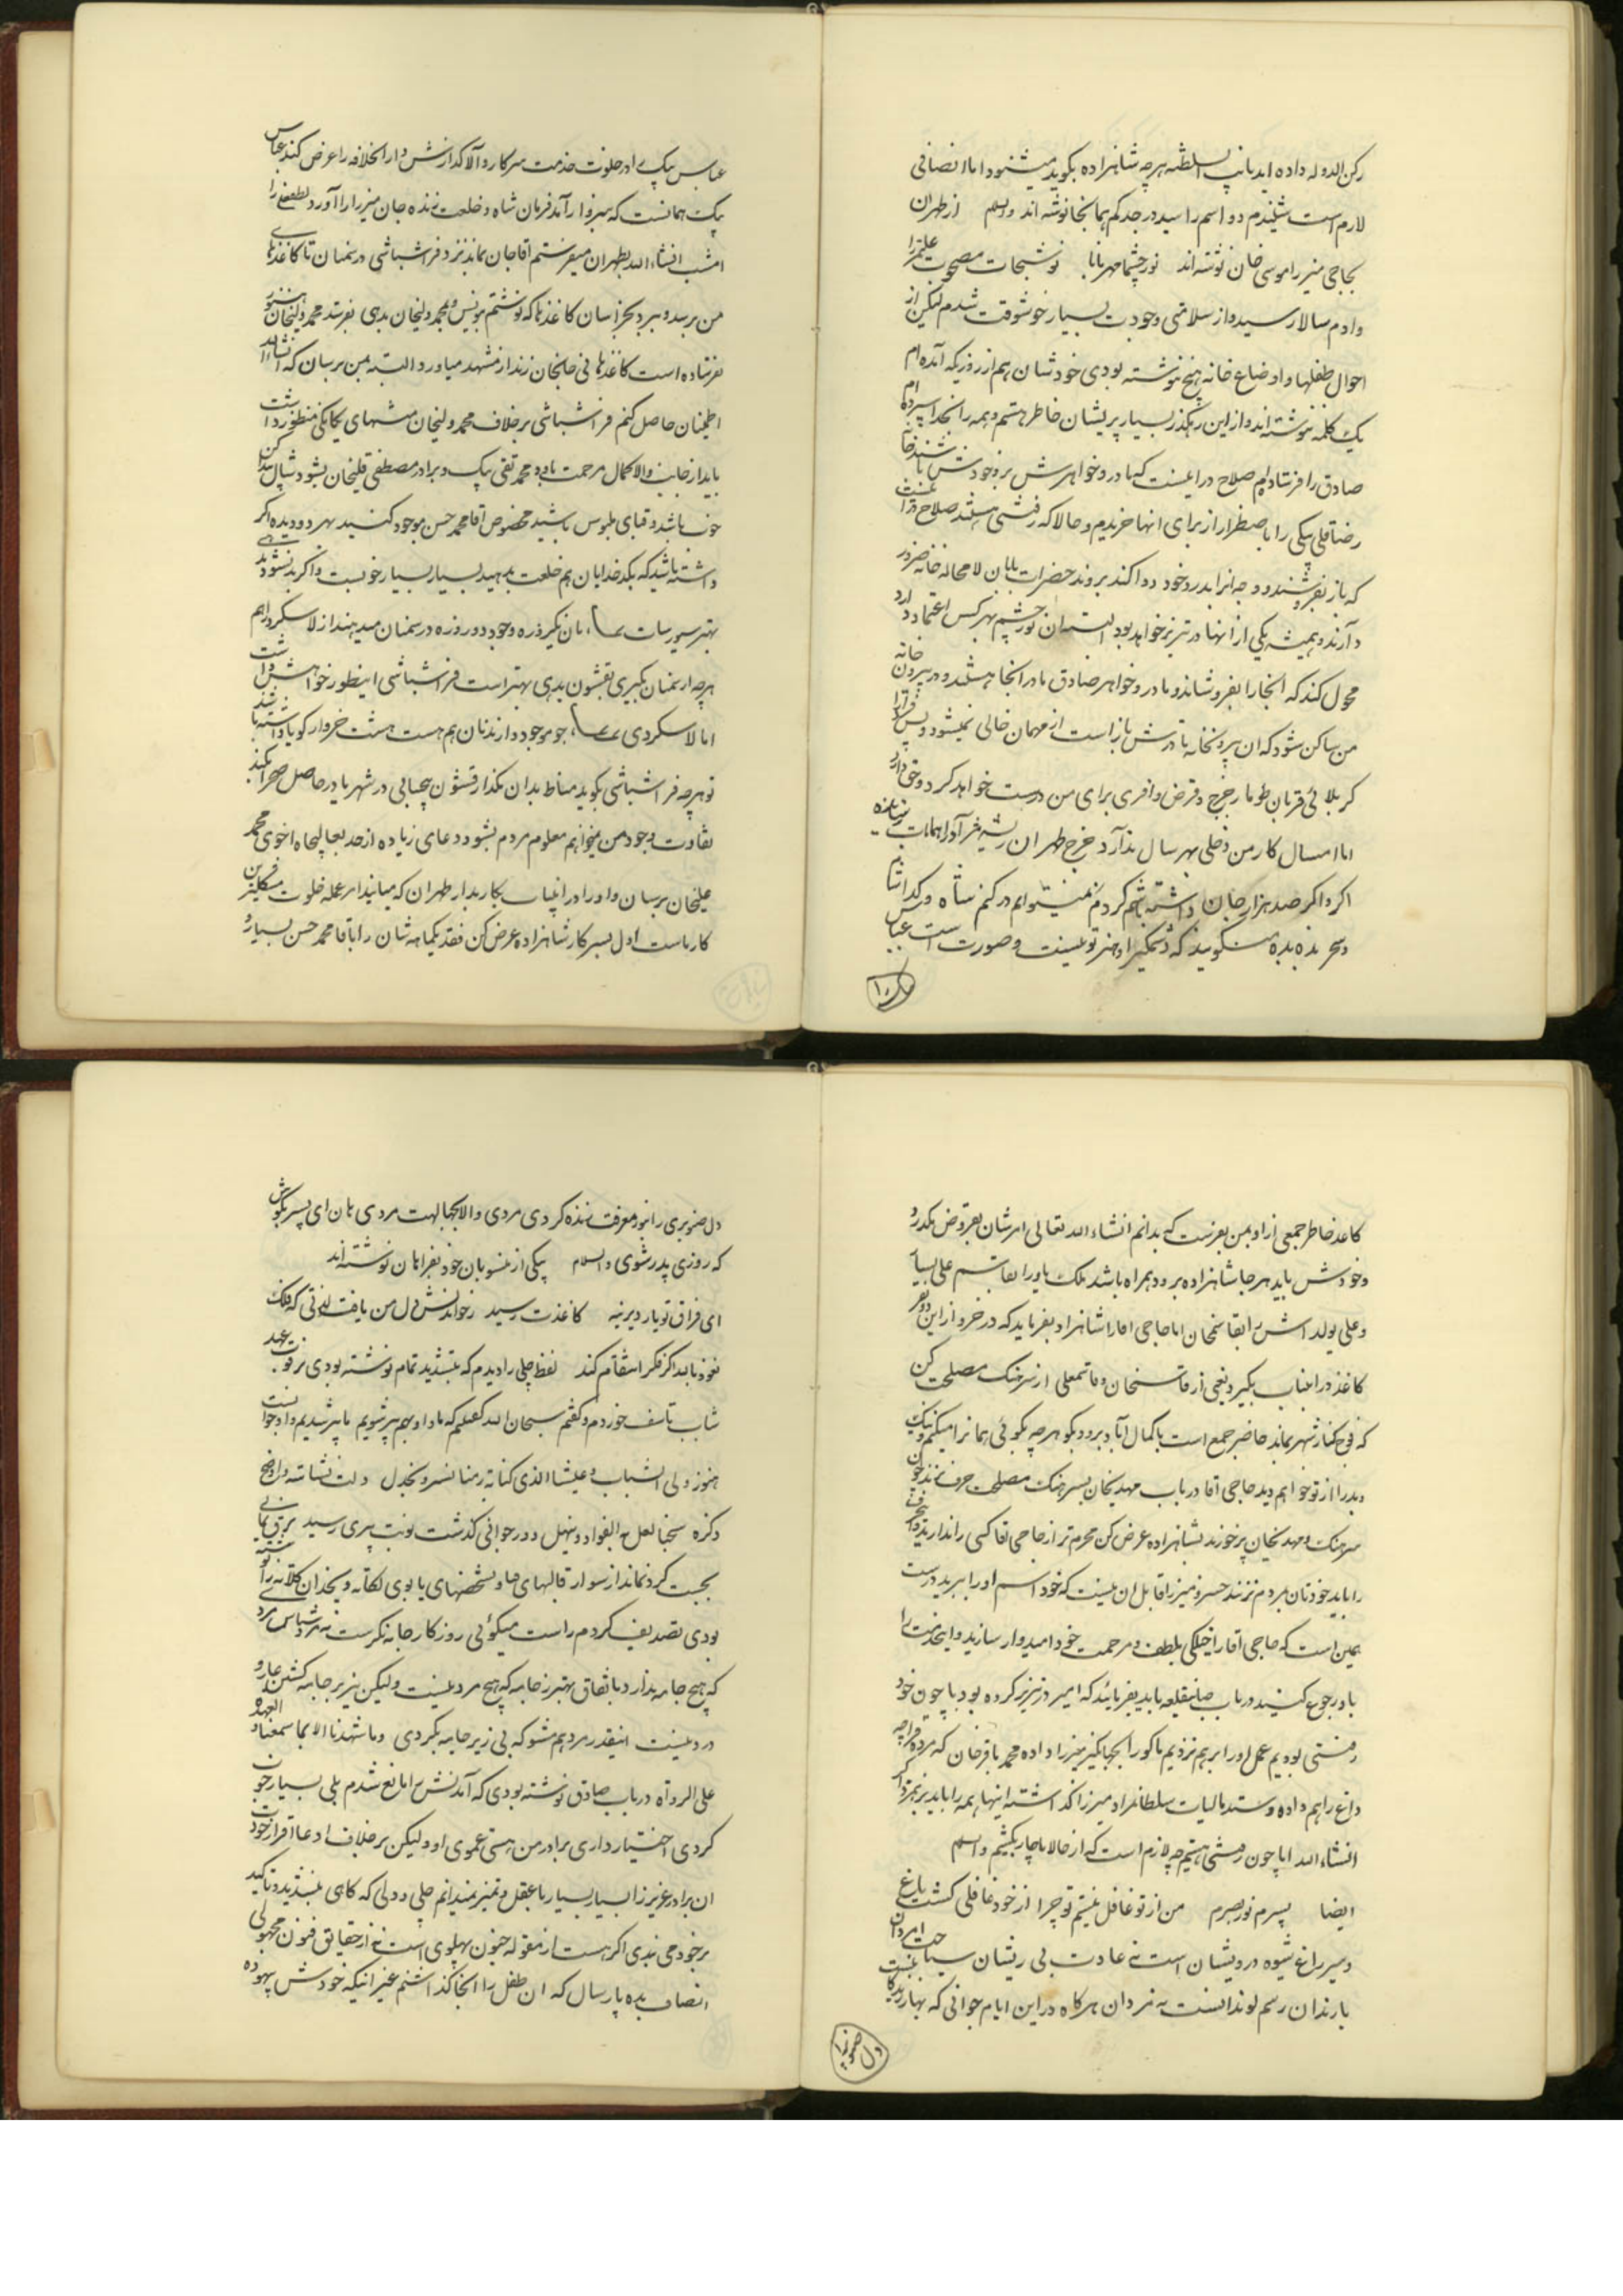 رکن الدوله داده اید نایب السلطنه هرچه شاهزاده بگوید میشنود اما انصافی
لازم است شنیدم دو اسم را سید رجد کم همانجا نوشته اند والسلم از طهران
بحاجی میرزا موسی خان نوشته اند نور چشما مهربانا نوشتجات مصحوب علیمیرزا
وادم سالار رسید و از سلامتی وجودت بسیار خوشوقت شدم لیکن از
احوال طفلها و اوضاع خانه هیچ ننوشته بودی خودشان هم از روزیکه آمده ام
یک کلمه ننوشته اند و از این رهگذر بسیار پریشان خاطر هستم و همه را بخدا سپرده ام
صادق را فرستاده ام صلاح در اینست که مادر و خواهرش نزد خودش باشند خانه
رضاقلی بیکی را باضطرار از برای آنها خریدم و حالا که رفتنی هستند صلاح در آنست
که باز بفروشند و وجه انرا بدرد خود دوا کنند بروند حضرات بابان لامحاله خانه ضرور
دارند و همیشه یکی از آنها در تبریز خواهد بود البته ان نور چشم بهر کس اعتماد دارد
محول کند که آنجا را بفروشاند و مادر و خواهر صادق مادر آنجا هستند و در بیرون خانه
من ساکن شود که ان بیرونخانه تا درش باز است از مهمان خالی نمیشود و پس فردا
کربلائی قربان طومار خرج و قرض وافری برای من درست خواهد کرد و حق دارد
اما امسال کار من دخلی بهر سال ندارد خرج طهران ریشه مرا درآورد اهالی
اگر واگر صد هزار جان داشته باشم کردنم نمیتوانم درکنم شاه و کدا
و سحر بده بده میگویند که دستگیر او جز تو نیست و صورت است عباس
عباس بیک را در خلوت خدمت سرکار والا گذارنش دار الخلافه را عرض کند عباس
بیک همانست که سبزوار آمد فرمان شاه و خلعت زنده جان میرزا را آورد لطفعلی را
امشب انشاء الله بطهران میفرستم آقاجان بماند نزد فراشباشی در سمنان تا کاغذهای
من برسد و ببرد بخراسان کاغذها که نوشتم بونس و محمد ولیخان بدهی بفرستد محمد ولیخان هنوز
نفرستاده است کاغذهای نجفی خان زند از مشهد میاورد البته بمن برسان که انشاالله
اطمینان حاصل کنم فراشباشی برخلاف محمد ولیخان مشتهای یکایکی منظور داشت
باید از جانب والا کمال مرحمت باو و محمد تقی بیک و برادر مصطفی قلیخان بشود شال
خوب باشد و قبای ملبوس باشید مخصوص آقا محمد حسن موجود کنید بهر دو و دیده اگر
داشته باشد که بکدخدایان هم خلعت بدهید بسیار بسیار خوبست و اگر نشود
بهتر سیورسات نان یکروزه وجود دو روزه در سمنان میدهند از لاسکرد هم
هرچه از سمنان بگیری بقشون بدهی بهتر است فراشباشی اینطور خواهش داشت
اما لاسکردی جو موجود دارند نان هم هست هشت خروار گویا داشته باشد
تو هرچه فراشباشی بگوید مناط بدان مگذار قشون بیحسابی در شهر یا در حاصل صحرا بکند
تفاوت وجود من میخواهم معلوم مردم بشود دعای زیاده از حد بعالیجاه اخوی محمد
علیخان برسان و او را در اینباب بکار بدار طهران که میمانند امر عمله خلوت مشکلترین
کارهاست اول بسرکار شاهزاده عرض کن نقد یکماهه شان را باقا محمد حسن بسیار
کاغذ خاطر جمعی از او بمن بفرست که بدانم انشاء الله تعالی امرشان بفروض نگذرد
و خودش باید هرجا شاهزاده برود همراه باشد ملک یاور ابقاسم علی
و علی بولداش را بقاسمخان اما حاجی اقا را شاهزاده بفرماید که در خرواز این دو نفر
کاغذ در اینباب بگیرد یعنی از قاسمخان و قاسمعلی از سرهنگ مصلحت کن
که فوج کنار شهر بماند حاضر جمع است با کمال آباد برود بگو هرچه بگوئی همانرا میکنم و نیک
و بد را از تو خواهم دید حاجی آقا در باب مهدیخان بسرهنگ مصلحت حرف نزند چون
سرهنگ و مهدیخان پر خورند بشاهزاده عرض کن محرم تر از حاجی آقا کسی را ندارید حرف
را باید خودتان بمردم نزنند خسرو میرزا قابل ان نیست که خود اسم او را ببرید درست
همین است که حاجی آقا را خیلی بلطف و مرحمت خود امیدوار سازید و اینخدمت را
باو رجوع کنید در باب صاینقلعه باید بفرمائید که امیر در تبریز کرده بود با چون خود
رفتنی بودیم عمل او را برهم نزدیم ماکو را بجهانگیر میرزا داده محمد باقرخان که مرده قراچه
داغ را هم داده و ستد مالیات سلطانمراد میرزا گذاشته اینها همه را باید برهم زد
انشاء الله اما چون رفتنی هستیم چه لازم است که از حالا ناچار بکشیم والسلم
ایضا پسرم نور بصرم من از تو غافل نیستم تو چرا از خود غافلی گشت باغ
و سیر راغ شیوه درویشان است نه عادت بی ریشان سیاحت امردان
با رندان رسم لوندانست نه مردان هرگاه در این ایام جوانی که بهار زندگانیست
دل صنوبری را بنور معرفت زنده کردی مردی والا بجهالت مردی هان ای پسر بکوش
که روزی پدر شوی والسلام بیکی از منسوبان خود بفراهان نوشته اند
ای فراق تو یار دیرینه کاغذت رسید ز خواندنش دل من یافت لذتی که فلک
نعوذ بالله اگر فکر انتقام کند لفظ چلی را دیدم که بتشدید تمام نوشته بودی بر فوت عهد
شباب تاسف خوردم و گفتم سبحان الله گفتم که ما و او بهم پیر شویم ما پیر شدیم و او جوانست
هنوز ولی الشباب و عیشنا الذی کنا به زمنا نسر و نجذل دلت نشاسته و اوضح
ذکره سخنا لعل الفواد و ینهل دور جوانی گذشت نوبت پیری رسید برق یمانی
بجست گرد نماند از سوار قالبهای صاو شخصهای یابوی لکاته و یخدان کلانه را نوشته
بودی تصدیق کردم راست میگوئی روزگار جامه نگرست نه مرد شناس مرد
که هیچ جامه ندارد باتفاق بهتر ز جامه که هیچ مرد نیست ولیکن بزیر جامه گشتن عار و
درد نیست اینقدر مرد هم مشو که بی زیر جامه بگردی و ما شهدنا الا بما سمعنا و العهدة
علی الرواة در باب صادق نوشته بودی که آمدنش را مانع شدم بلی بسیار خوب
کردی اختیار داری برادر من هستی عموی او ولیکن برخلاف ادعا اقرار خودت
ان برادر عزیز را بسیار بسیار با عقل و تمیز نمیدانم چلی و دولی که گاهی بتشدید و تاکید
بر خود می بندی اگر هست از مقوله جنون بهلوی است نه از حقایق فنون مجهولی
انصاف بده پارسال که ان طفل را آنجا گذاشتم غیر اینکه خودش بیهوده
دل صنوبری